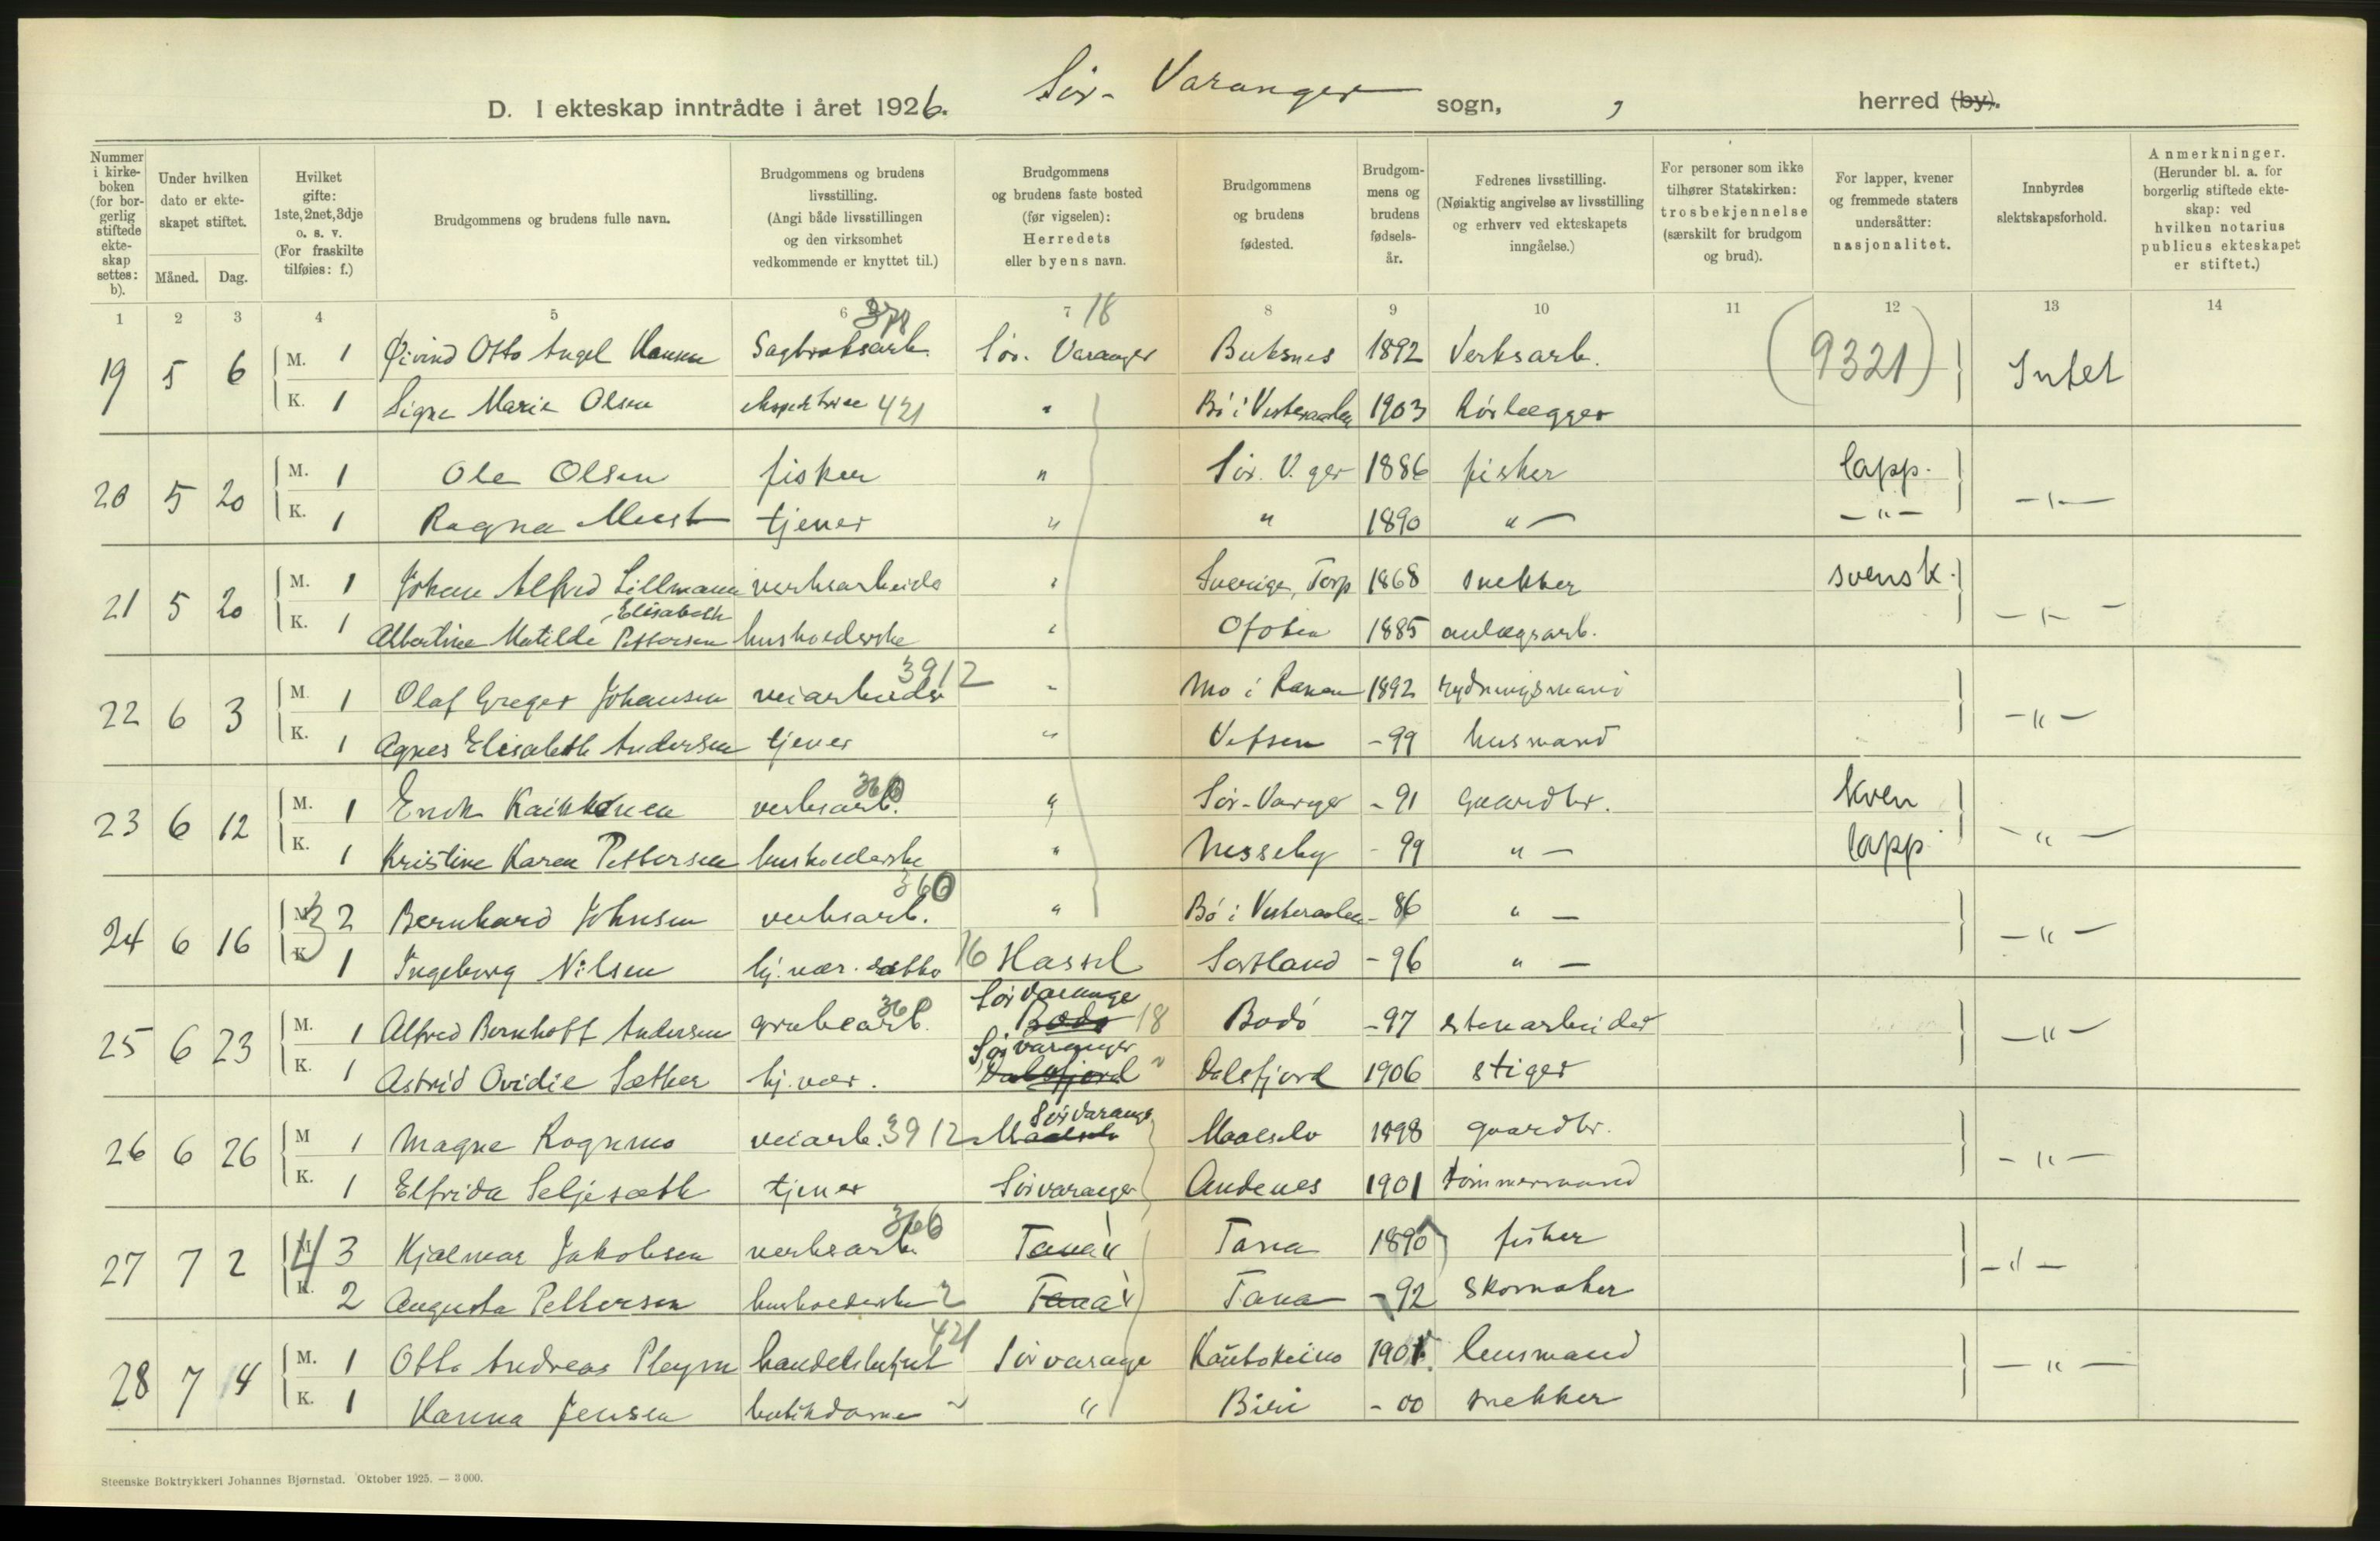 D. I ekteskap inntrådte i året 1926. Sör-Varanger sogn, , herred (by).
Nummer i kirkeboken (for borgerlig stiftede ekteskap settes: b).
Under hvilken dato er ekteskapet stiftet.
Måned. Dag.
Hvilket gifte: 1ste, 2net, 3dje o. s. v. (For fraskilte tilføies: f.)
Brudgommens og brudens fulle navn.
Brudgommens og brudens livsstilling. (Angi både livsstillingen og den virksomhet vedkommende er knyttet til.)
Brudgommens og brudens faste bosted (før vigselen): Herredets eller byens navn.
Brudgommens og brudens fødested.
Brudgommens og brudens fødselsår.
Fedrenes livsstilling. (Nøiaktig angivelse av livsstilling og erhverv ved ekteskapets inngåelse.)
For personer som ikke tilhører Statskirken: trosbekjennelse (særskilt for brudgom og brud).
For lapper, kvener og fremmede staters undersåtter: nasjonalitet.
Innbyrdes slektskapsforhold.
Anmerkninger. (Herunder bl. a. for borgerlig stiftede ekteskap: ved hvilken notarius publicus ekteskapet er stiftet.)
1 2 3 4 5 6 7 18 8 9 10 11 12 13 14
19 5 6 M. 1 Øivind Otto Angel Hannu Sagbruksarb. Sör. Varanger Buksnes 1892 Verksarb. (9321) Intet
K. 1 Signe Marie Olsen ekspeditrice 421 " Bö i Vesteraalen 1903 Rörlægger
20 5 20 M. 1 Ole Olsen fisker " Sör. V.ger 1886 fisker lapp. -"-
K. 1 Ragna Meest tjener " " 1890 "- -"-
21 5 20 M. 1 Johan Alfred Lillmann verksarbeider " Sverige, Torp 1868 snekker svensk. -"-
K. 1 Albertine Matilde Elisabeth Pettersen husholderske " Ofoten 1885 anlægsarb.
22 6 3 M. 1 Olaf Greger Johansen veiarbeider 3912 " Mo i Ranen 1892 rydningsmand -"-
K. 1 Agnes Elisabeth Andersen tjener " Vefsen -99 husmand
23 6 12 M. 1 Erick Kaikkonen verksarb. 360 " Sör-Varger -91 gaardbr. kven -"-
K. 1 Kristine Karen Pettersen husholderske " Nesseby -99 "- lapp
24 6 16 M. 3 2 Bernhard Johnsen verksarb. 360 " Bö i Vesteraalen -86 "- -"-
K. 1 Ingeborg Nilsen hj. vær. datter 16 Hassel Sortland -96 "-
25 6 23 M. 1 Alfred Bernhoff Andersen grubearb. 360 Sör Varanger Bodö 18 Bodö -97 stenarbeider -"-
K. 1 Astrid Ovidie Sæther hj. vær. Sör varanger Dalsfjord " Dalsfjord 1906 stiger
26 6 26 M 1 Magne Rognmo veiarb. 3912 Sör Varanger Maalselv Maalselv 1898 gaardbr. -"-
K. 1 Elfrida Seljesæth tjener Sörvaranger Andenes 1901 tömmermand
27 7 2 M 4 3 Hjalmar Jakobsen verksarb. 360 Tana " Tana 1890 fisker -"-
K. 2 Augusta Pettersen husholderske Tana " Tana -92 Skomaker
28 7 14 M. 1 Otto Andreas Pleym handelsbetjent 421 Sörvaranger Kautokeino 1901 lensmand -"-
K. 1 Hanna Jensen butikdame " " Biri -00 snekker
Steenske Boktrykkeri Johannes Bjørnstad. Oktober 1925. — 3000.